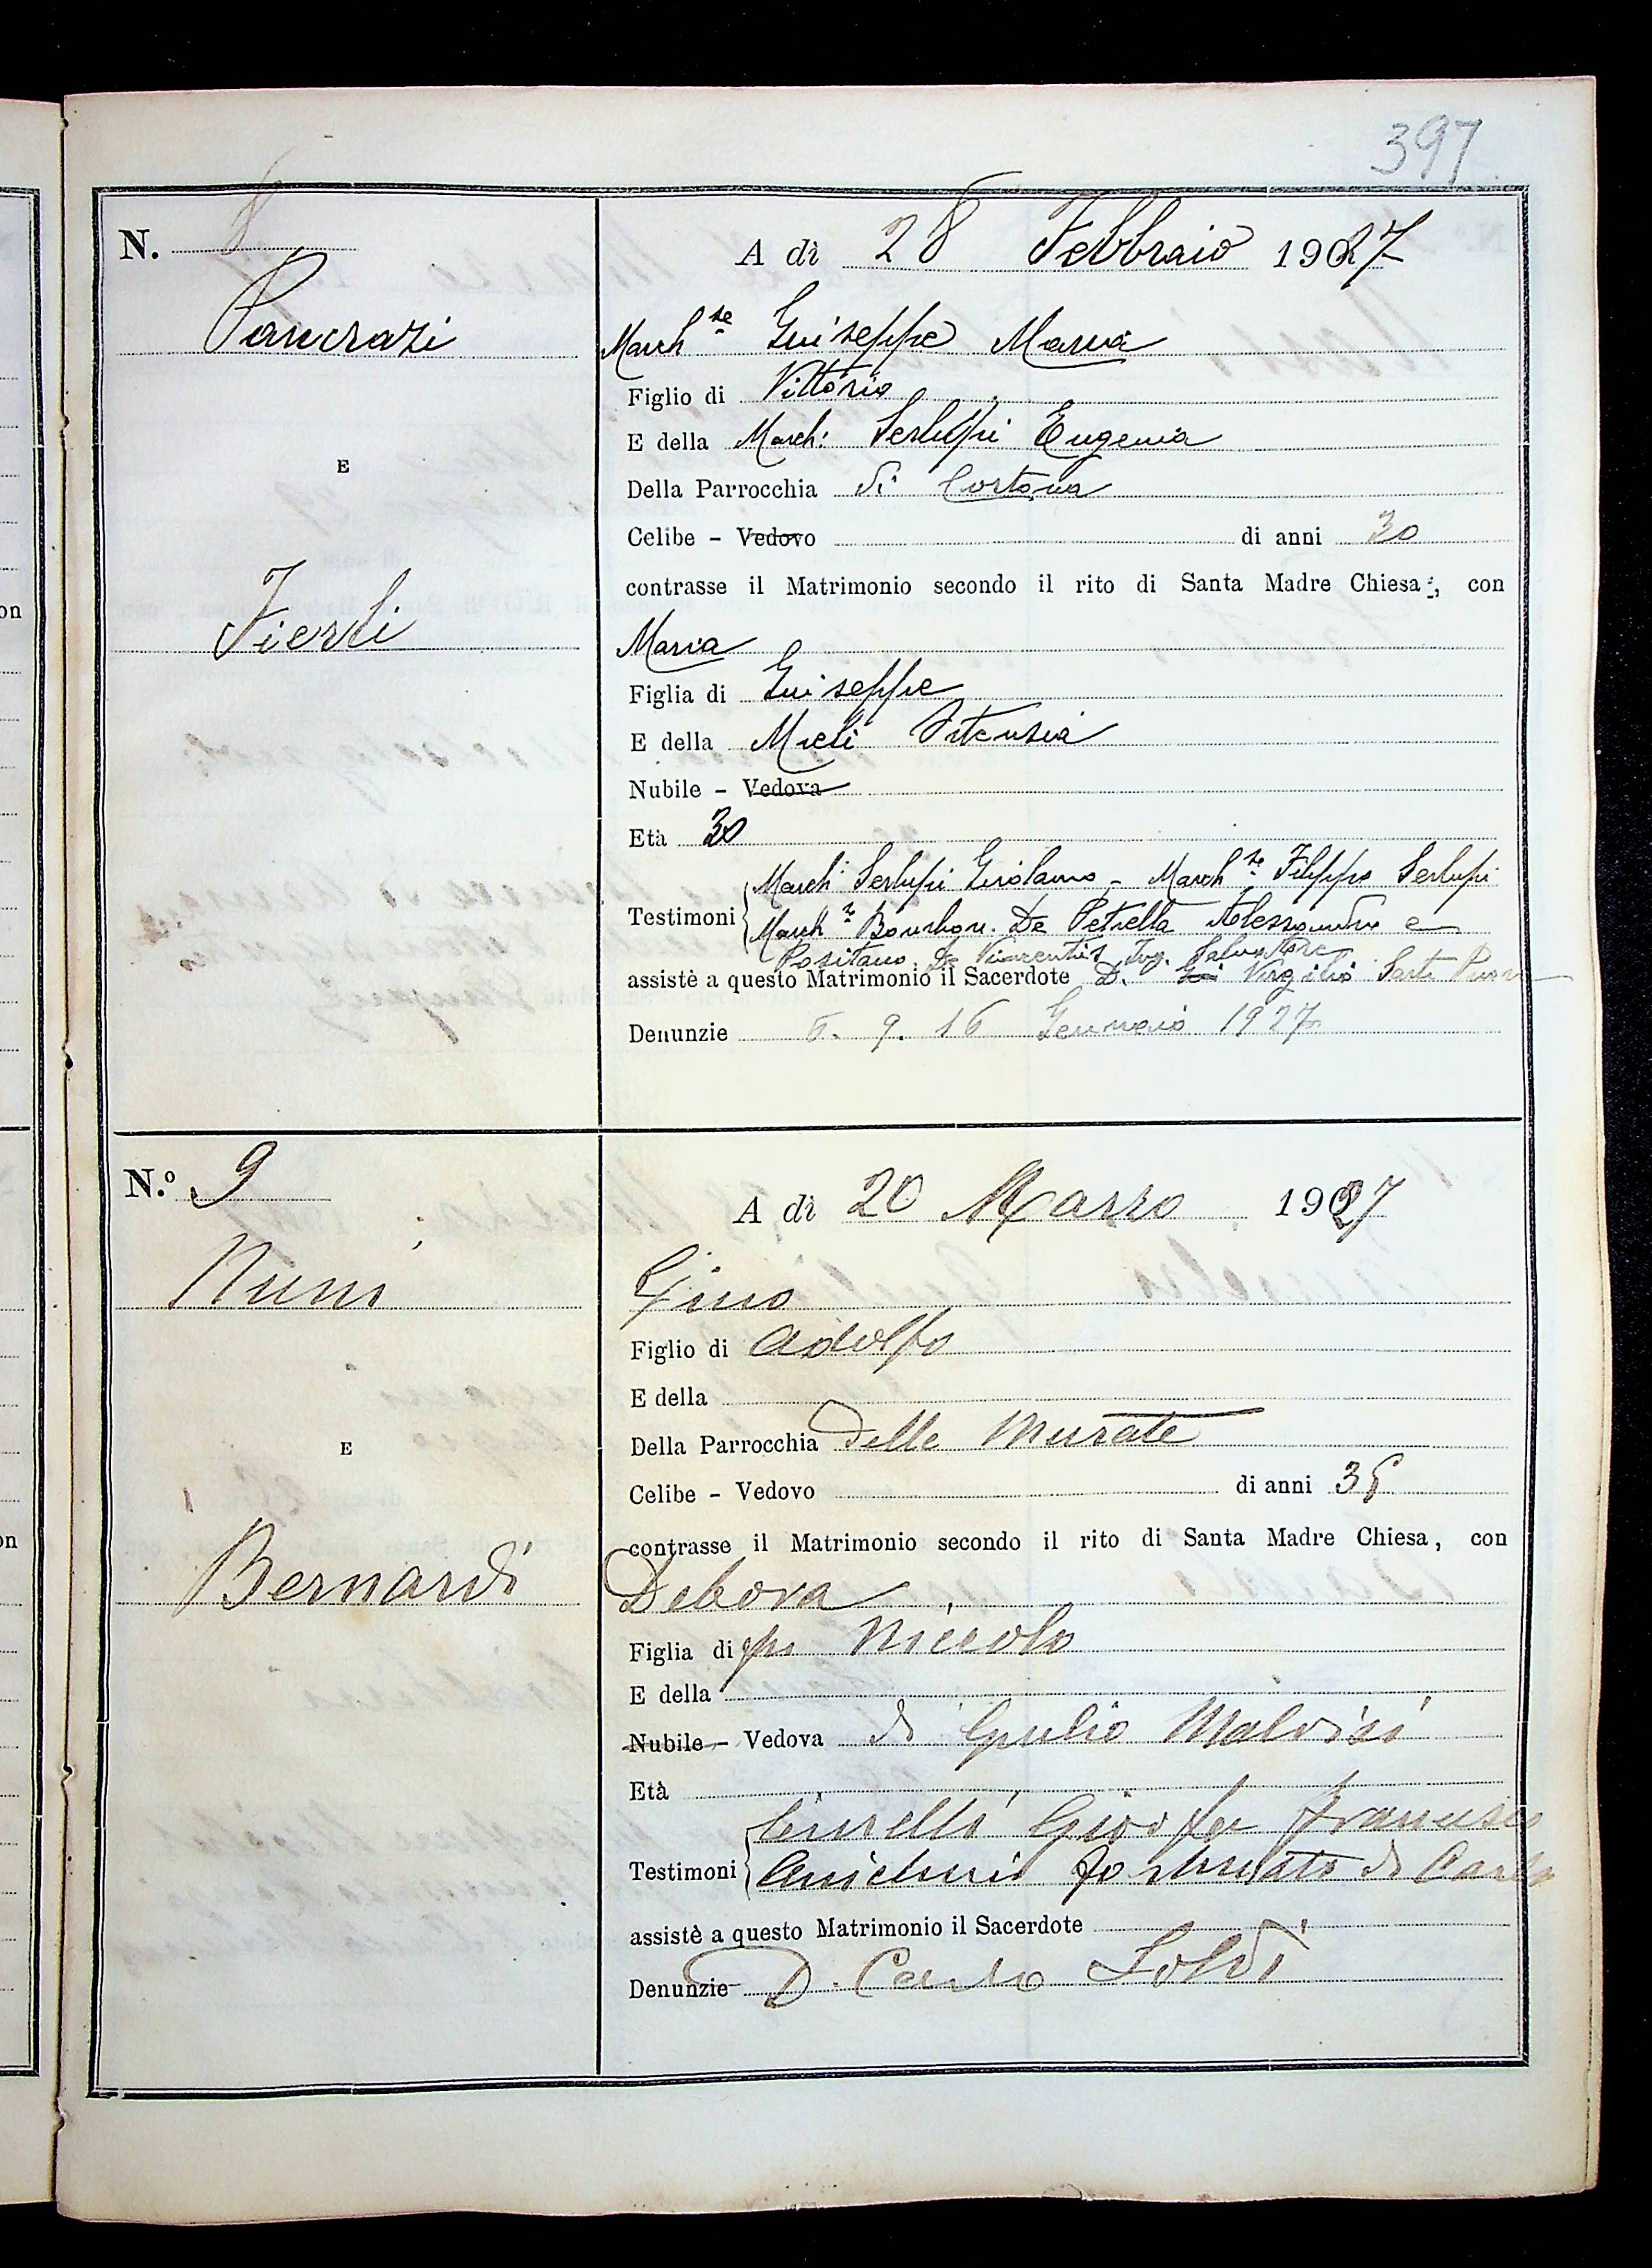 397
N. 8
A dì 28 Febbraio 1927
Pancrazi
March.se Giuseppe Maria
Figlio di Vittorio
E della March: Serlupi Eugenia
E
Della Parrocchia di Cortona
Celibe - Vedovo di anni 30
contrasse il Matrimonio secondo il rito di Santa Madre Chiesa, con
Fierli
Maria
Figlia di Giuseppe
E della Mieli
Nubile - Vedova
Età 30
March: Serlupi Girolamo - March.se Filippo Serlupi
Testimoni March.se Bourbon De Petrella Alessandro e
Positano De Vincentis Ing. Salvatore
assistè a questo Matrimonio il Sacerdote D. Virgilio Sarti
Denunzie 6. 9. 16 Gennaio 1927
N.º 9
A dì 20 Marzo 1927
Nuni
Gino
Figlio di Adolfo
E della
E
Della Parrocchia delle Murate
Celibe - Vedovo di anni 35
contrasse il Matrimonio secondo il rito di Santa Madre Chiesa, con
Bernardi
Debora
Figlia di fu Niccolo
E della
Nubile - Vedova di Giulio Malvisi
Età
Cinelli Gino fu Francesco
Testimoni Fortunato di Carlo
assistè a questo Matrimonio il Sacerdote
Denunzie D. Carlo Soldi